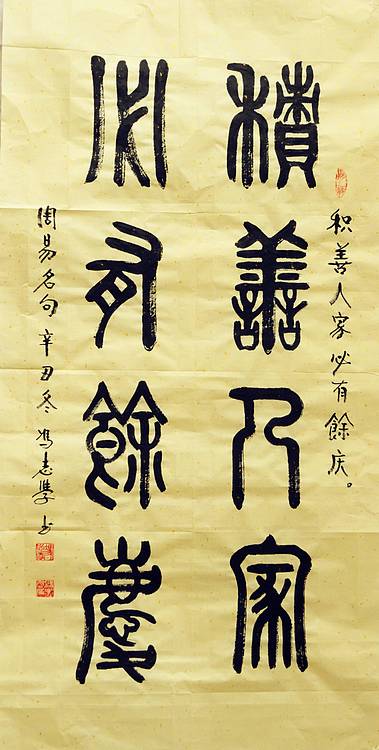 积善人家必有餘庆。
積善人家
必有餘慶
周易名句 辛丑冬 冯志學书